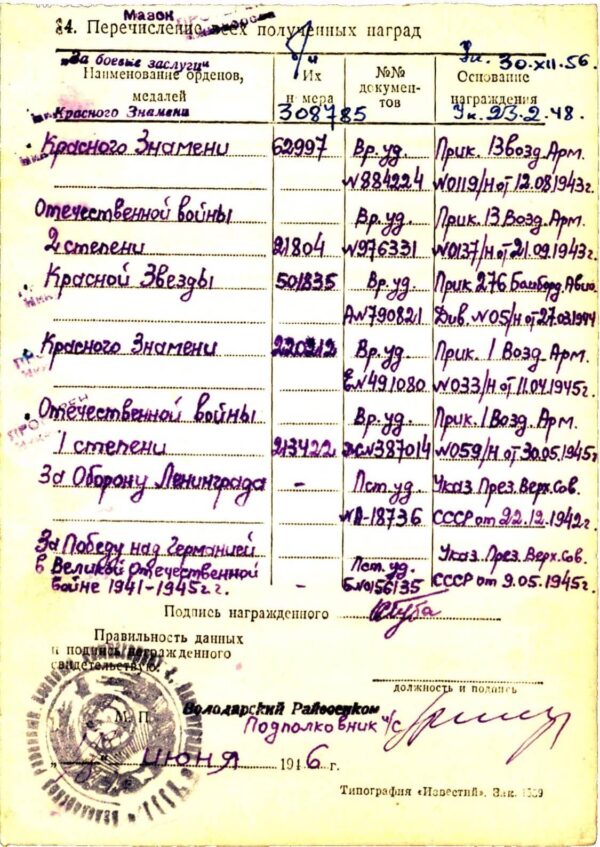 Мазок
34. Перечисление всех полученных наград
"За боевые заслуги" "/" Ук. 30-XII-56.
Наименование орденов, медалей
Их номера
№№ документов
Основание награждения
Красного Знамени 308785 Ук. 23.2.48.
Красного Знамени 62997 Вр. уд. Прик. 13 Возд. Арм.
№884224 №0119/Н от 12.08.1943г.
Отечественной войны Вр. уд. Прик. 13 Возд. Арм.
2 степени 21804 №976331 №0137/Н от 21.09.1943г.
Красной Звезды 501835 Вр. уд. Прик. 276 Бамборд. Авиа.
А№790821 Див. №05/Н от 27.03.1944
Красного Знамени 220212 Вр. уд. Прик. 1 Возд. Арм.
Е№491080 №033/Н от 11.04.1945г.
Отечественной войны Вр. уд. Прик. 1 Возд. Арм.
1 степени 213422 №387014 №059/Н от 30.05.1945г.
За Оборону Ленинграда - Пст. уд. Указ. През. Верх. Сов.
СССР от 22.12.1942г.
За Победу над Германией Указ. През. Верх. Сов.
в Великой Отечественной Пст. уд.
войне 1941-1945г.г. - Б№0156135 СССР от 9.05.1945г.
Подпись награжденного
Правильность данных
и подпись награжденного
свидетельствую:
должность и подпись
М. П. Володарский Райвоенком
Подполковник и/с
июня 1946 г.
Типография «Известий». Зак. 1359